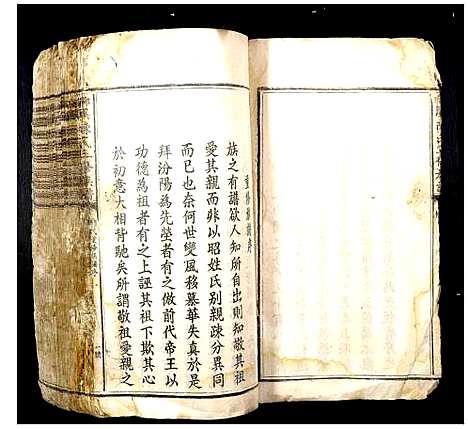 重修族譜序
族之有譜欲人知所自出則知敬其祖
愛其親而非以昭姓氏別親疎分異同
而已也奈何世變風移慕華失真於是
拜汾陽為先塋者有之倣前代帝王以
功德為祖者有之上誣其祖下欺其心
於初意大相背馳矣所謂敬祖愛親之